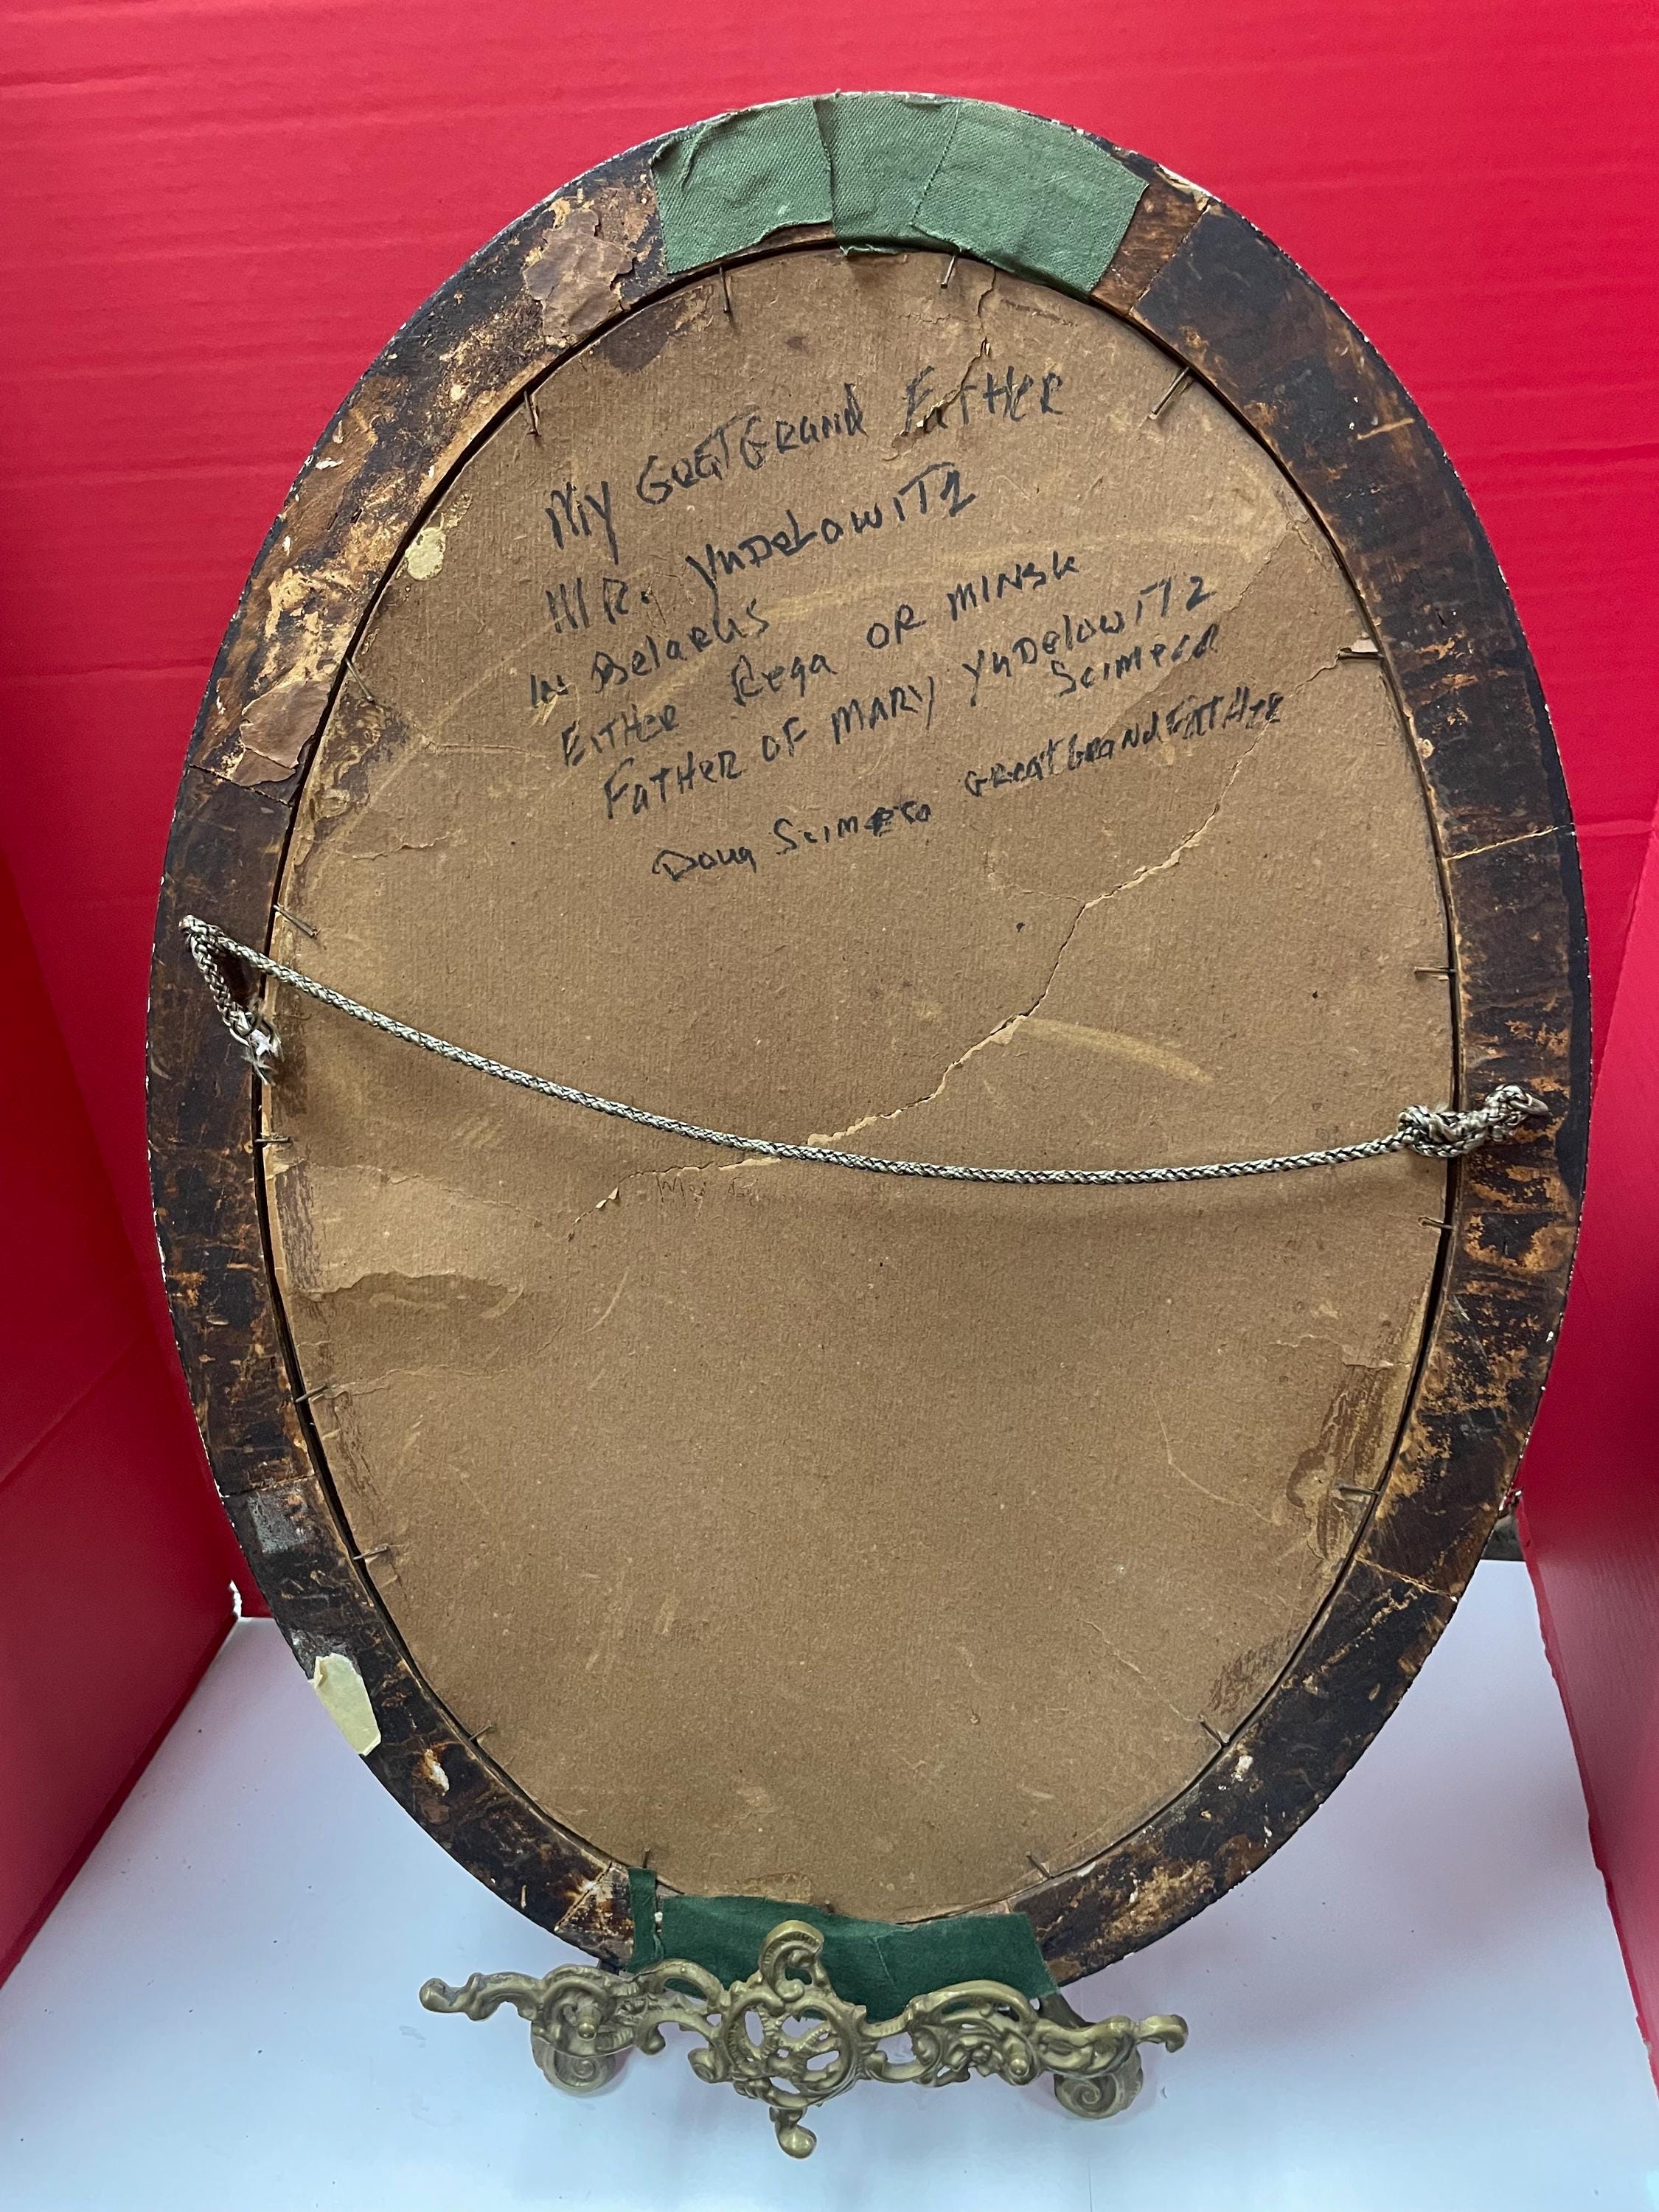 My GREAT GRand FatHeR
MR. YuDeLowiTz
IN BelaRus
EitHeR Rega OR MINSk
FatHeR OF MARY YuDelowiTz
Scimeca
Doug Scimeca GReatGRandFatHeR